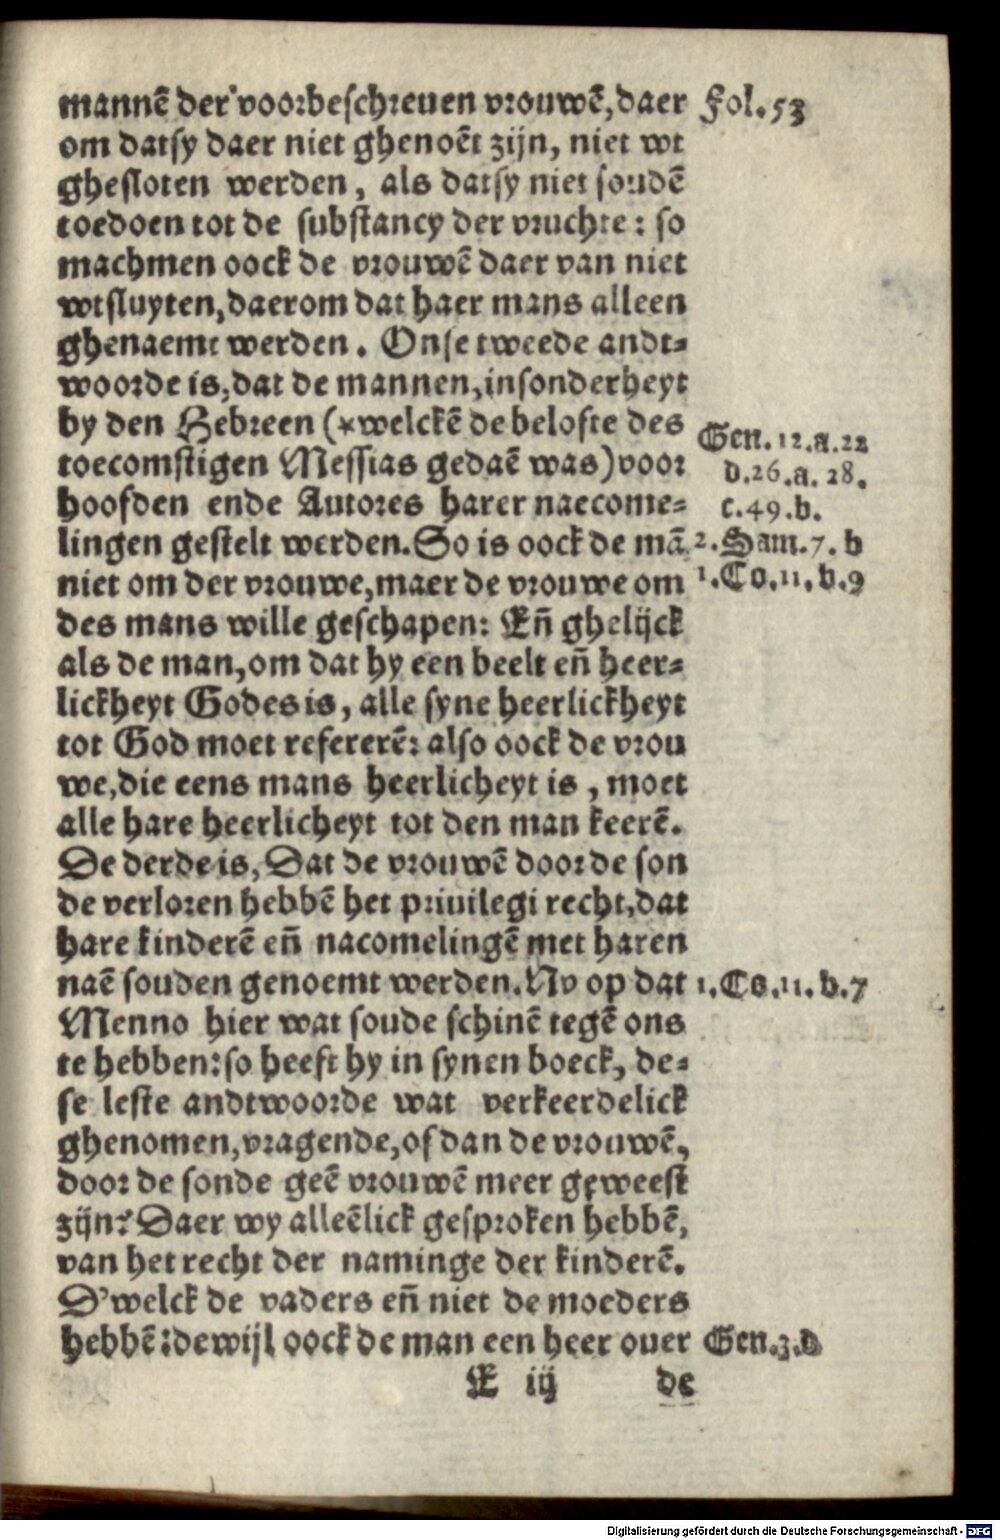 mannē der voorbeschreuen vrouwē, daer Fol. 53
om datsy daer niet ghenoēt zijn, niet wt
ghesloten werden, als datsy niet soudē
toedoen tot de substancy der vruchte: so
machmen oock de vrouwē daer van niet
wtsluyten, daerom dat haer mans alleen
ghenaemt werden. Onse tweede andt-
woorde is, dat de mannen, insonderheyt
by den Hebreen (*welckē de belofte des Gen. 12. a. 22
toecomstigen Messias gedaē was) voor d. 26. a. 28.
hoofden ende Autores harer naecome- c. 49. b.
lingen gestelt werden. So is oock de mā 2. Sam. 7. b
niet om der vrouwe, maer de vrouwe om 1. Co. 11. b. 9
des mans wille geschapen: Eñ ghelijck
als de man, om dat hy een beelt eñ heer-
lickheyt Godes is, alle syne heerlickheyt
tot God moet refererē: also oock de vrou
we, die eens mans heerlicheyt is, moet
alle hare heerlicheyt tot den man keerē.
De derde is, Dat de vrouwē door de son
de verloren hebbē het priuilegi recht, dat
hare kinderē eñ nacomelingē met haren
naē souden genoemt werden. Nv op dat 1. Co. 11. b. 7
Menno hier wat soude schinē tegē ons
te hebben: so heeft hy in synen boeck, de-
se leste andtwoorde wat verkeerdelick
ghenomen, vragende, of dan de vrouwē,
door de sonde geē vrouwē meer geweest
zijn? Daer wy alleēlick gesproken hebbē,
van het recht der naminge der kinderē.
D'welck de vaders eñ niet de moeders
hebbē: dewijl oock de man een heer ouer Gen. 3. b
E iij de
Digitalisierung gefördert durch die Deutsche Forschungsgemeinschaft - DFG